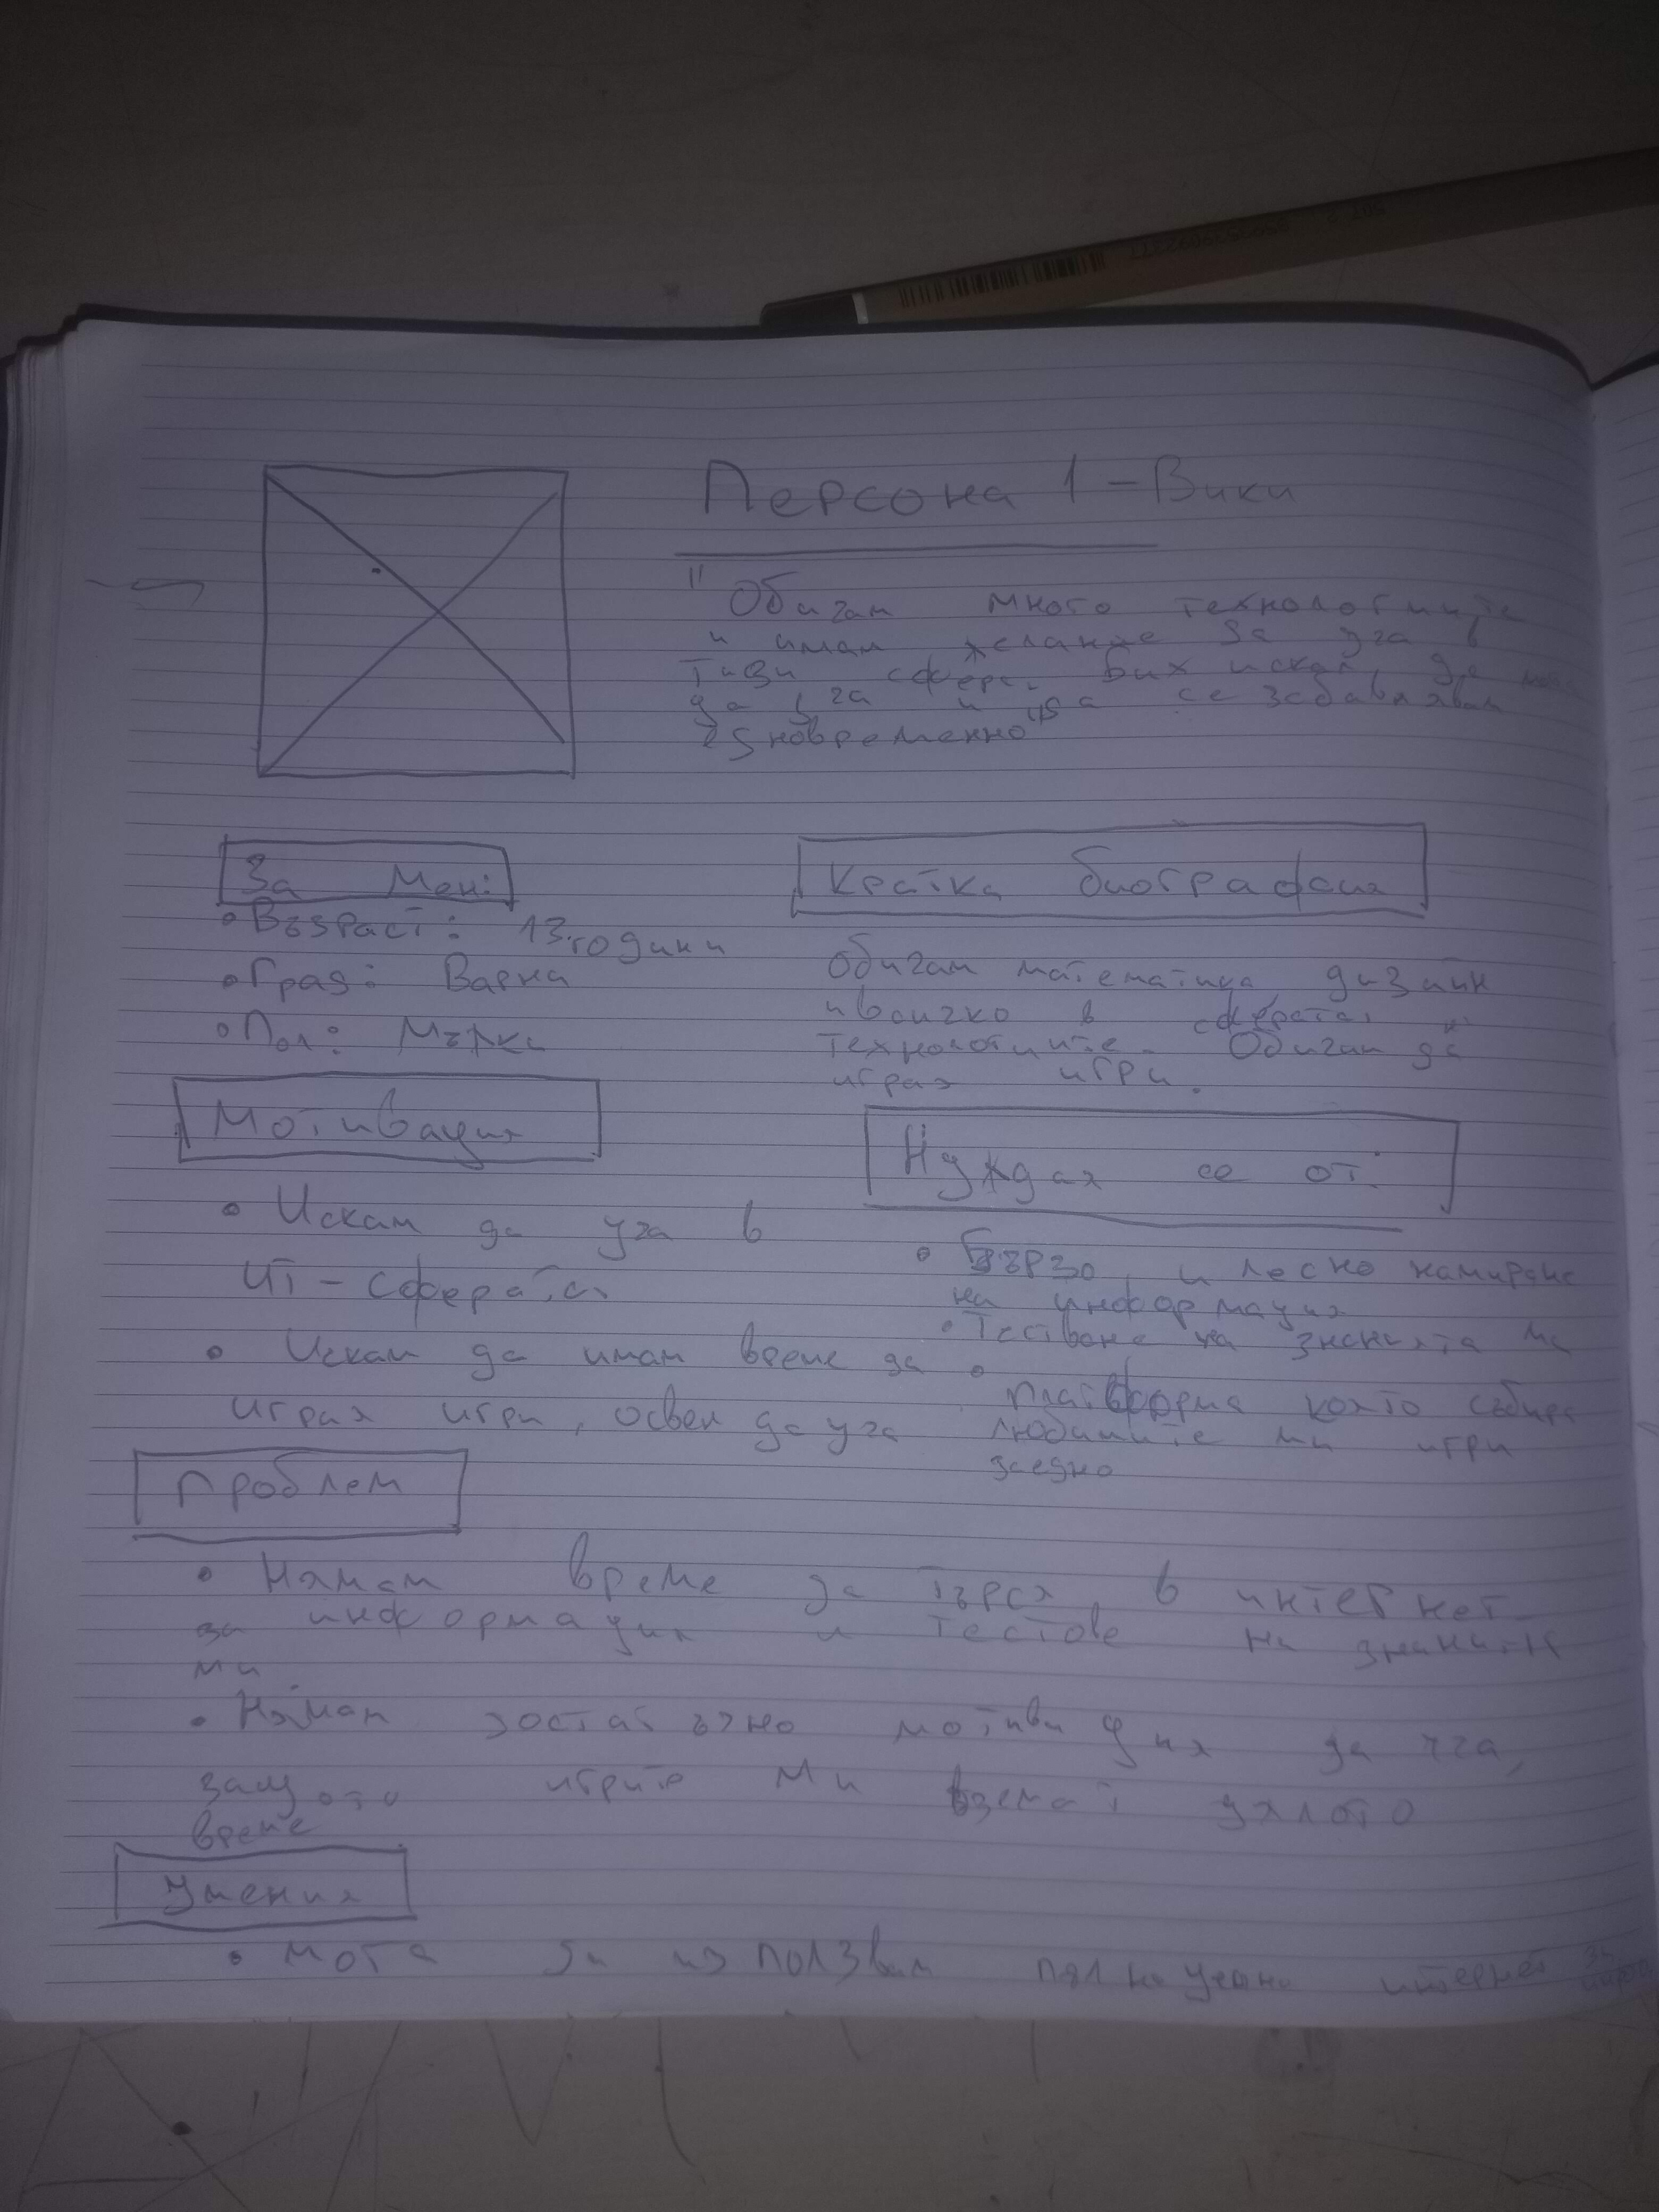 Персона 1 – Вики
" Обичам много технологиите
и имам желание да уча в
тази сфера. Бих искал да
да уча и да се забавлявам
едновременно"
За мен:
• Възраст: 13 години
• Град: Варна
• Пол: Мъжки
Кратка биография
Обичам математика дизайн
и всичко в сферата на
технологиите. Обичам да
играя игри.
Мотивация
• Искам да уча в
ИТ – сферата
• Искам да имам време да
играя игри, освен да уча
Нуждая се от:
• Бързо и лесно намиране
на информация
• Тестване на знанията ми
• платформа която събира
любимите ми игри
заедно
Проблем
• Нямам време да търся в интернет
за информация и тестове на знанията
ми
• Нямам достатъчно мотивация да уча,
защото игрите ми вземат цялото
време
Умения
• мога да използвам пълноценно интернет за